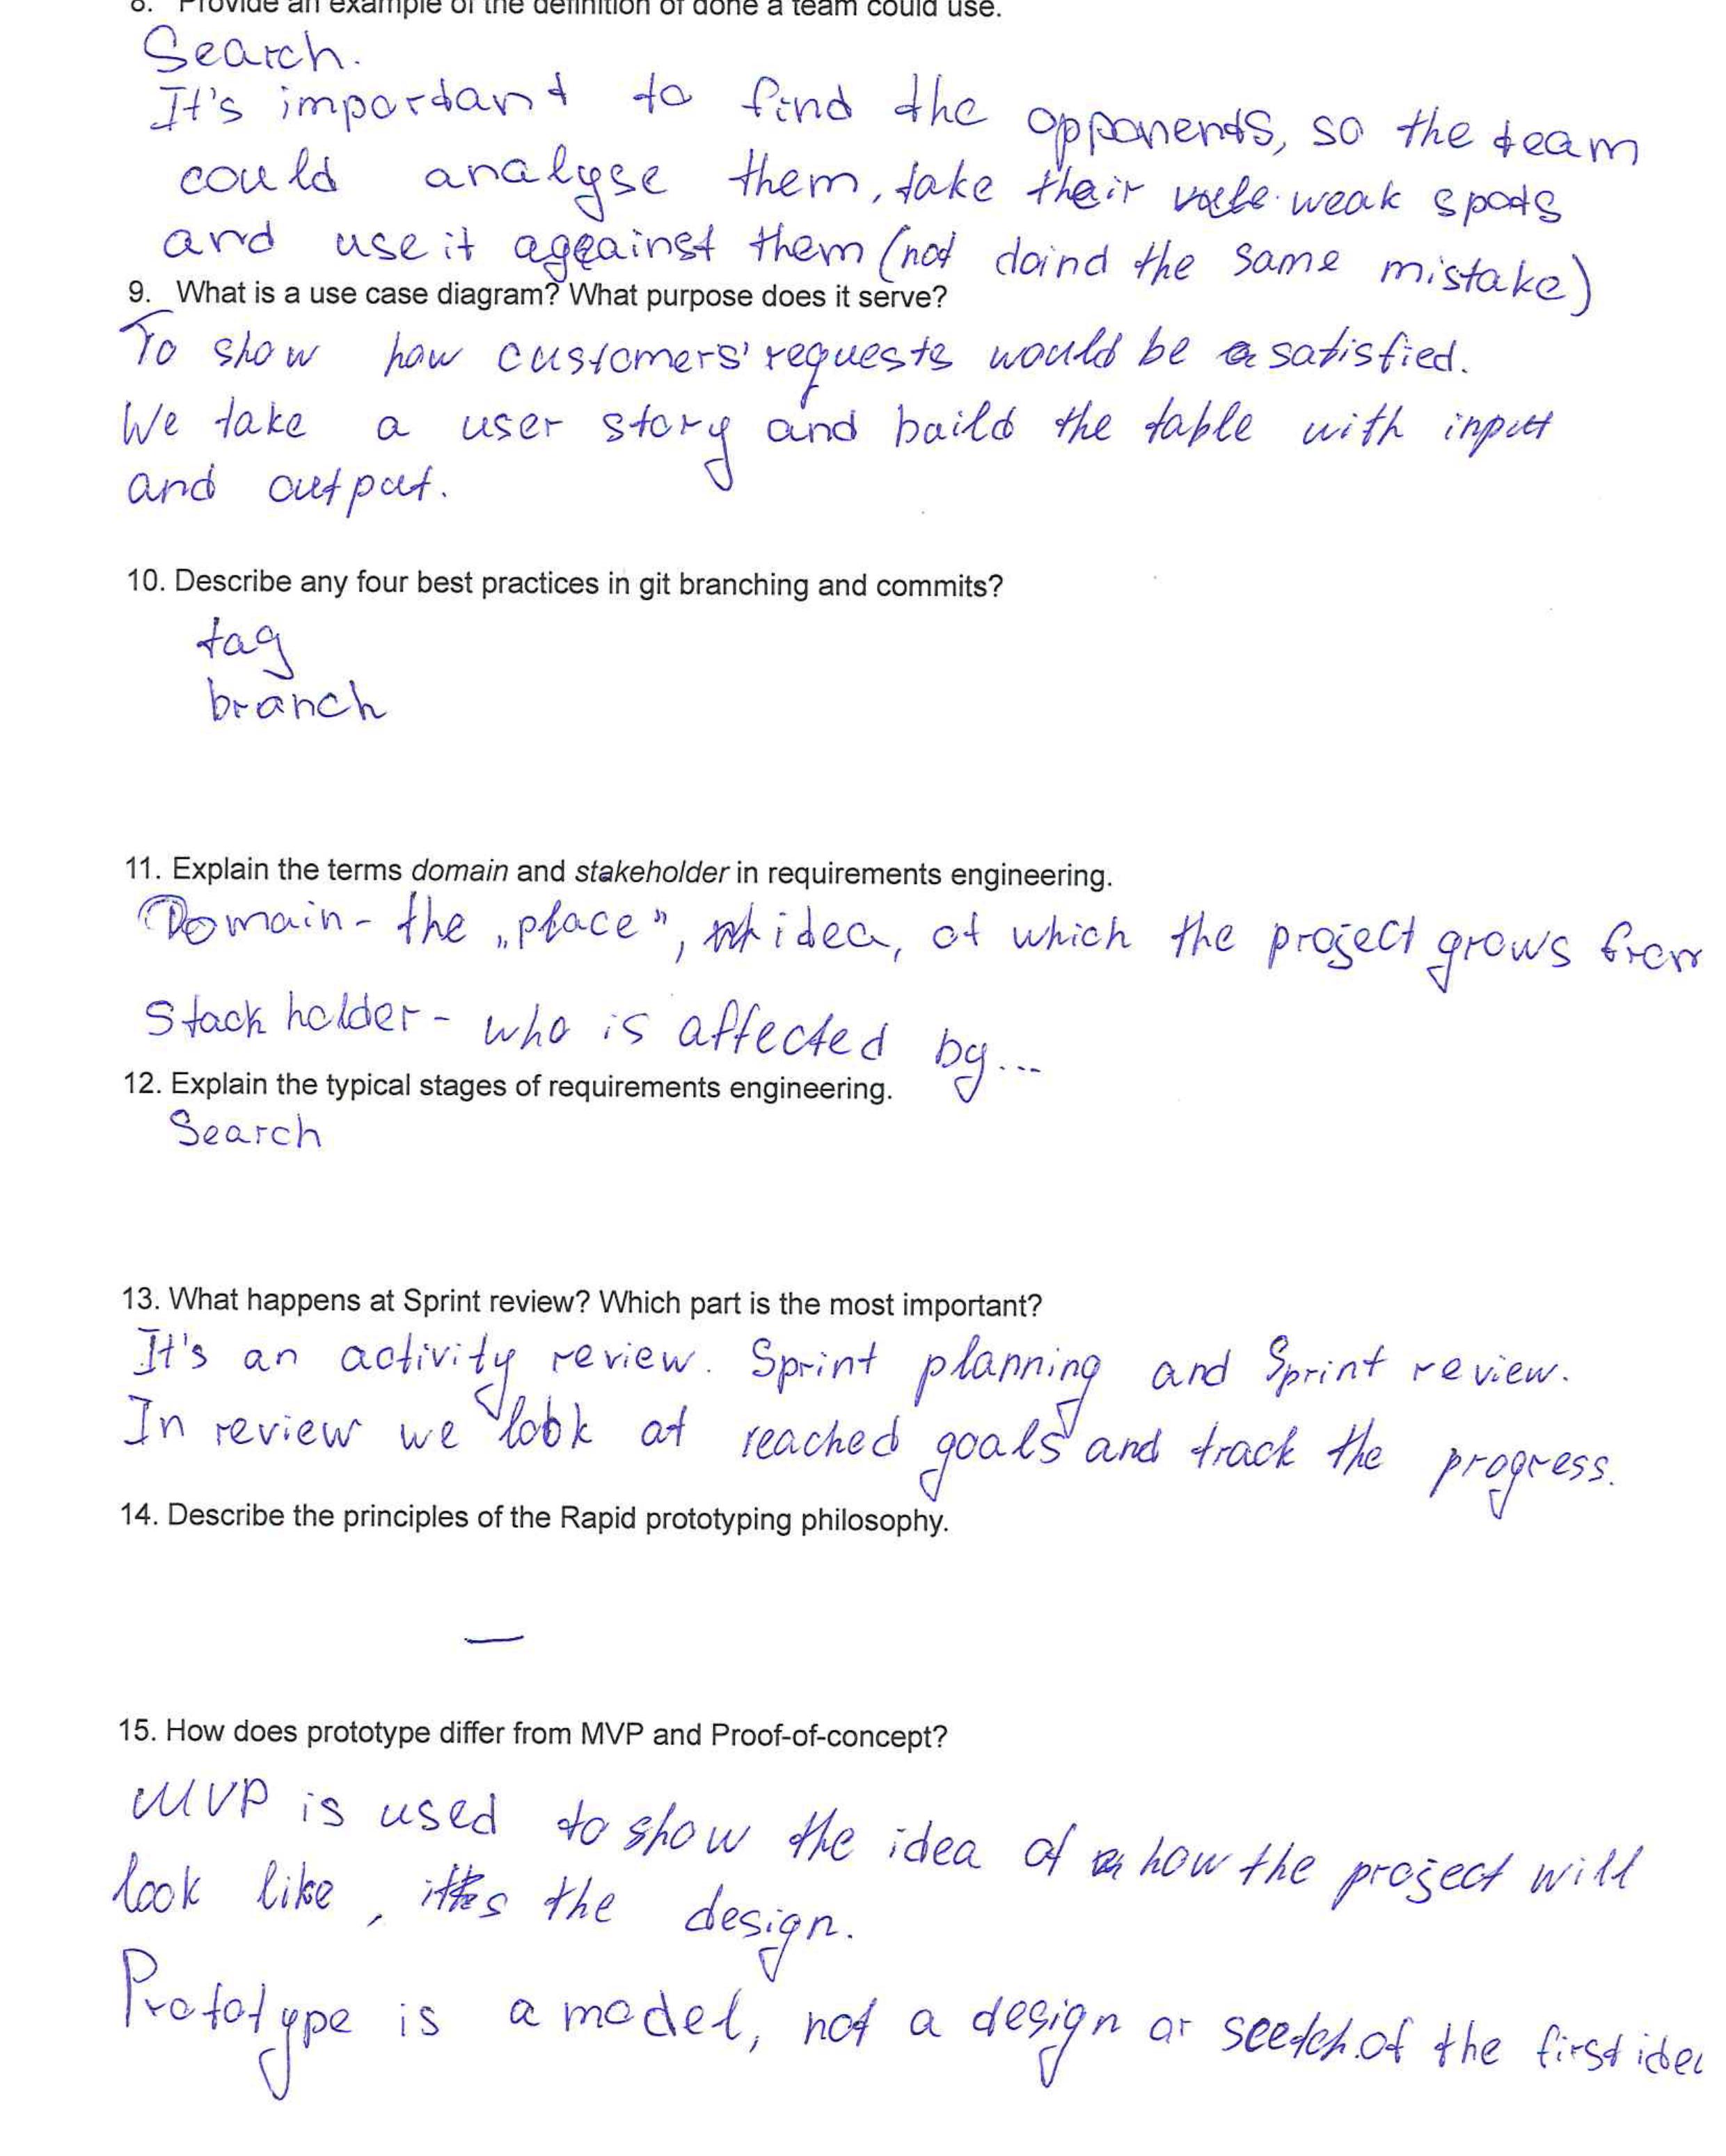 8. Provide an example of the definition of done a team could use.
Search.
It's important to find the opponents, so the team
could analyse them, take their weak spots
and use it ageainst them (not doind the same mistake)
9. What is a use case diagram? What purpose does it serve?
To show how customers' requests would be satisfied.
We take a user story and baild the table with input
and output.
10. Describe any four best practices in git branching and commits?
tag
branch
11. Explain the terms domain and stakeholder in requirements engineering.
Domain - the „place", idea, of which the project grows from
Stack holder - who is affected by...
12. Explain the typical stages of requirements engineering.
Search
13. What happens at Sprint review? Which part is the most important?
It's an activity review. Sprint planning and Sprint review.
In review we look at reached goals and track the progress.
14. Describe the principles of the Rapid prototyping philosophy.
—
15. How does prototype differ from MVP and Proof-of-concept?
MVP is used to show the idea of how the project will
look like, it's the design.
Prototype is a model, not a design or scetch of the first idea